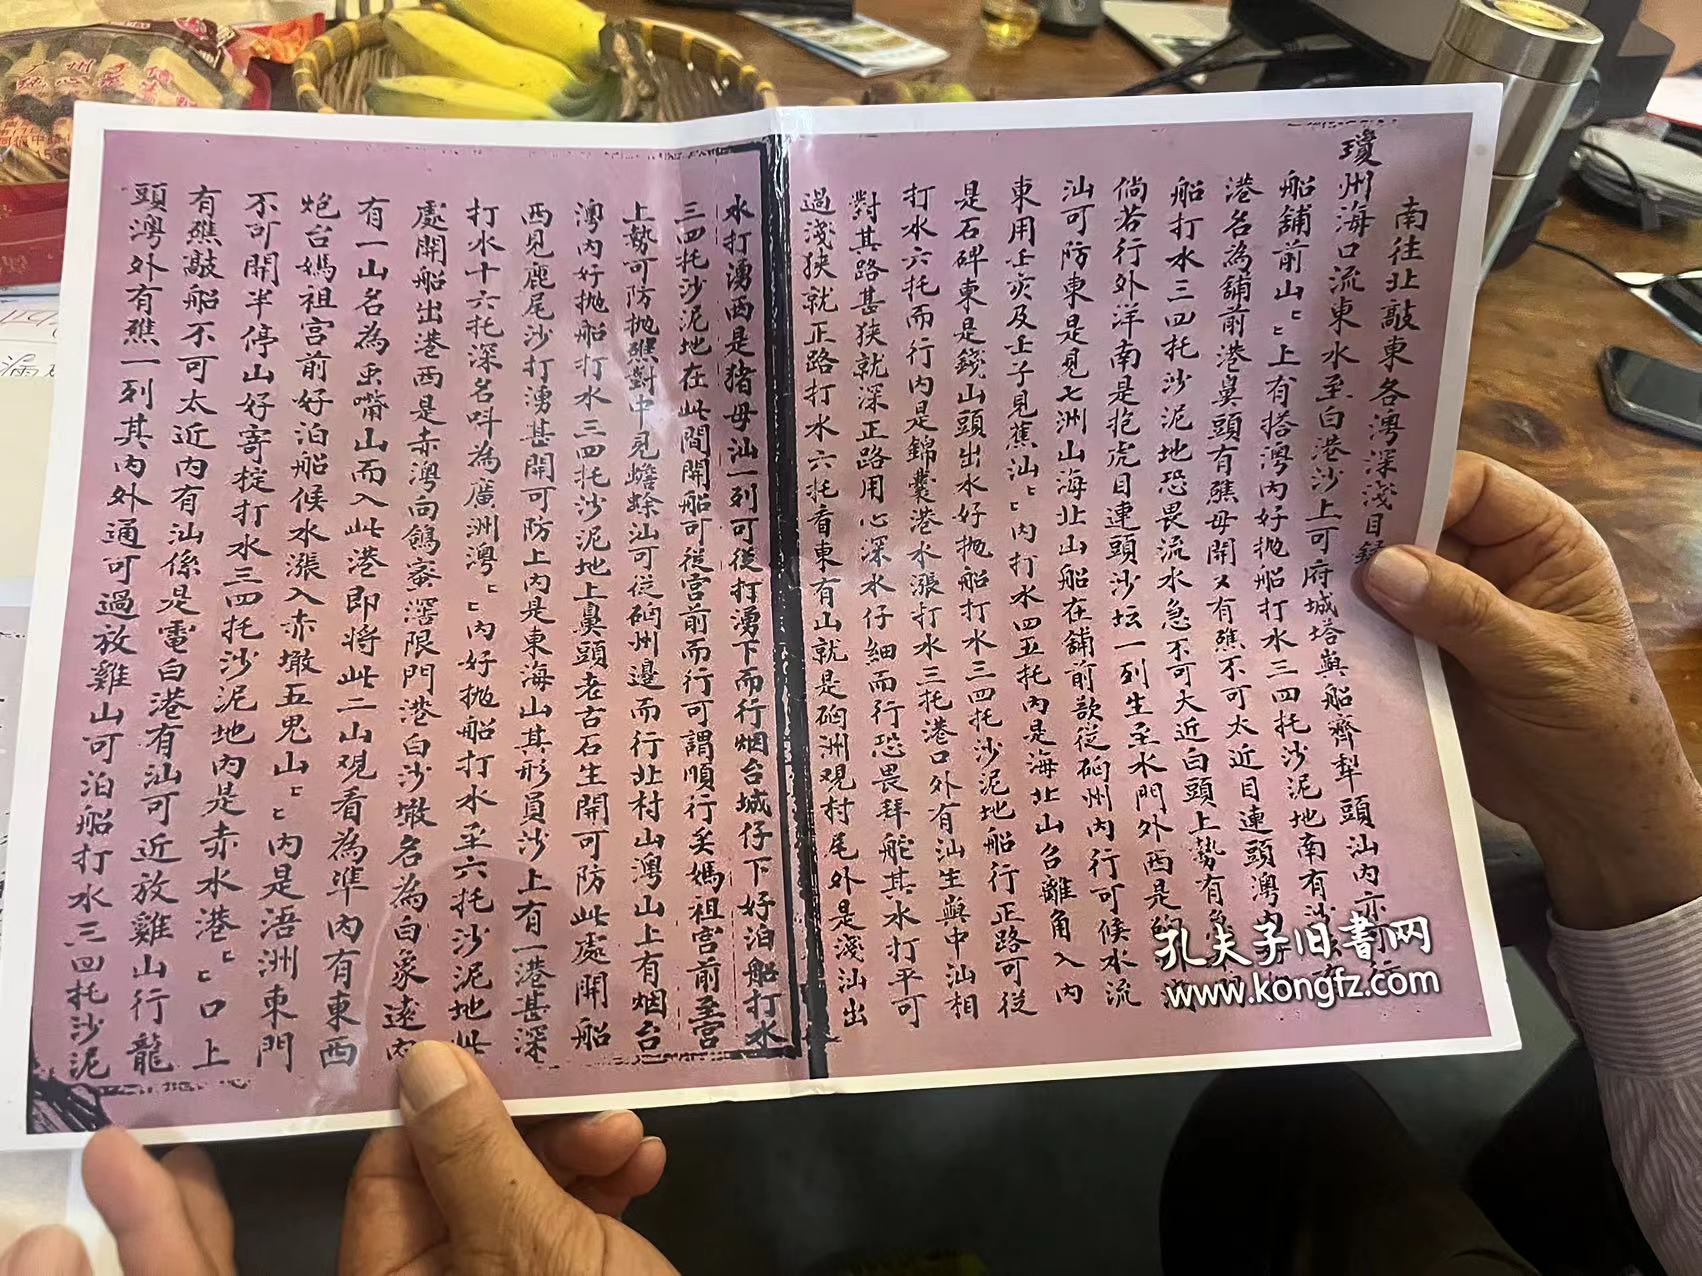 南往北敲東各灣深淺目錄
瓊州海口流東水至白港沙上可府城塔與船齊犁頭汕內亦
船舖前山〻上有搭灣內好拋船打水三四托沙泥地南有沙
港名為舖前港鼻頭有礁母開又有礁不可太近目連頭灣
船打水三四托沙泥地恐畏流水急不可大近白頭上勢有
倘若行外洋南是抱虎目連頭沙坛一列生至水門外西是
汕可防東是見七洲山海北山船在舖前歆從硇州內行可候水流
東用壬亥及壬子見蕉汕〻內打水四五托內是海北山台離角入內
是石碑東是錢山頭出水好拋船打水三四托沙泥地船行正路可從
打水六托而行內是錦囊港水漲打水三托港口外有汕生與中汕相
對其路甚狹就深正路用心深水仔細而行恐畏拜舵其水打平可
過淺狹就正路打水六托看東有山就是硇洲觀村尾外是淺汕出
水打湧西是猪母汕一列可從打湧下而行烟台城仔下好泊船打水
三四托沙泥地在此間開船可從宮前而行可謂順行妥媽祖宮前至宮
上勢可防拋礁對中見蟾蜍汕可從硇州邊而行北村山灣山上有烟台
澳內好拋船打水三四托沙泥地上鼻頭老古石生開可防此處開船
西見鹿尾沙打湧甚開可防上內是東海山其形員沙上有一港甚深
打水十六托深名呌為廣洲灣〻內好拋船打水至六托沙泥地此
處開船出港西是赤灣向鴿寮滘限門港白沙墩名為白家遠內
有一山名為虫嘴山而入此港即將此二山觀看為準內有東西
炮台媽祖宮前好泊船候水漲入赤墩五鬼山〻內是浯洲東門
不可開半停山好寄椗打水三四托沙泥地內是赤水港〻口上
有礁敲船不可太近內有汕係是電白港有汕可近放雞山行龍
頭灣外有礁一列其內外通可過放雞山可泊船打水三四托沙泥
孔夫子旧書网
www.kongfz.com